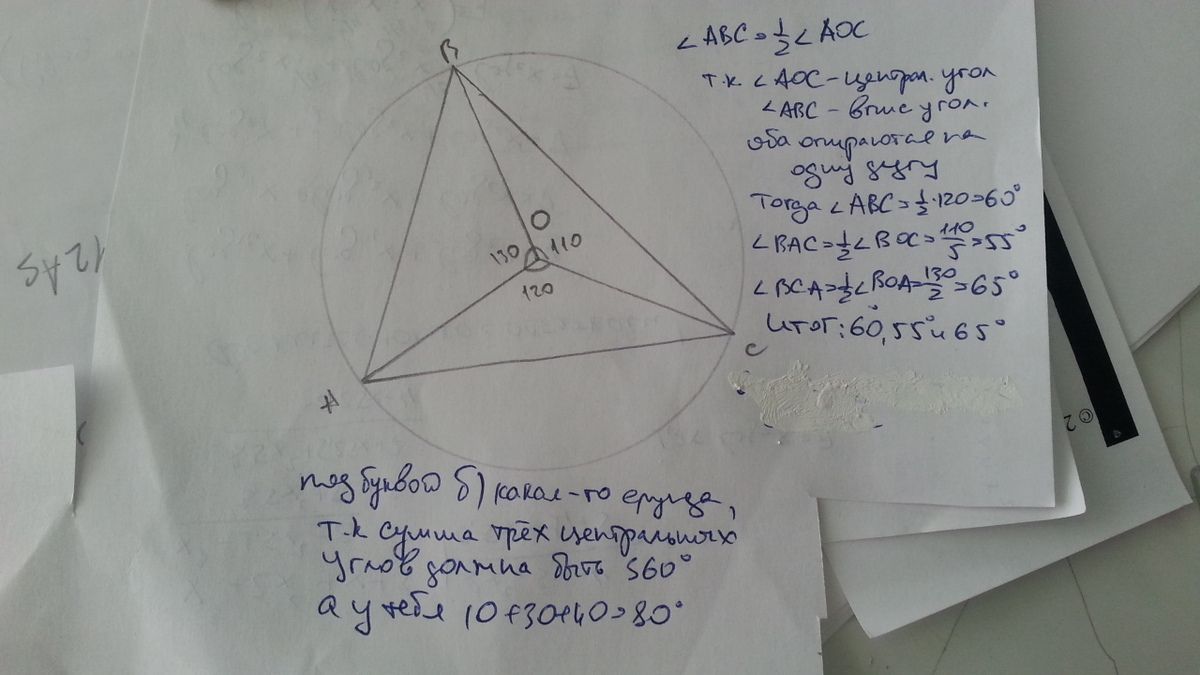 B
O
130 110
120
A
C
∠ABC = 1/2 ∠AOC
т.к ∠AOC - централ. угол
∠ABC - впис угол.
оба опираются на
одну дугу
Тогда ∠ABC = 1/2 · 120 = 60°
∠BAC = 1/2 ∠BOC = 110/5 = 55°
∠BCA = 1/2 ∠BOA = 130/2 = 65°
Итог: 60°, 55° и 65°
под буквой б) какая-то ерунда,
т.к сумма трёх центральных
углов должна быть 360°
а у тебя 10+30+40=80°
12 AS
©2